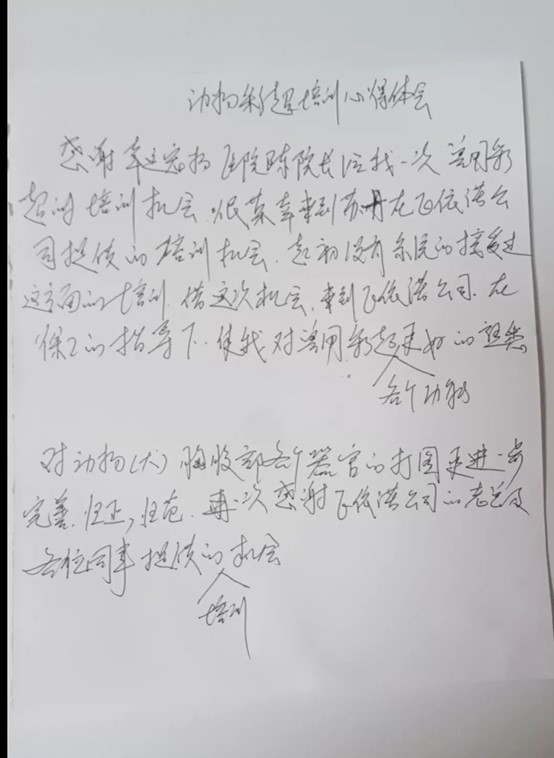 动物彩超培训心得体会
感谢宠物医院陈院长给我一次兽用彩
超的培训机会.很荣幸来到苏州在飞依诺公
司提供的培训机会.起初没有系统的接受过
这方面的培训.借这次机会.来到飞依诺公司.在
的指导下.使我对兽用彩超更好的熟悉
各个动物
对动物(犬)胸腹部各个器官的打图更进一步
完善.归正,归范.再一次感谢飞依诺公司的老总及
各位同事提供的机会
培训